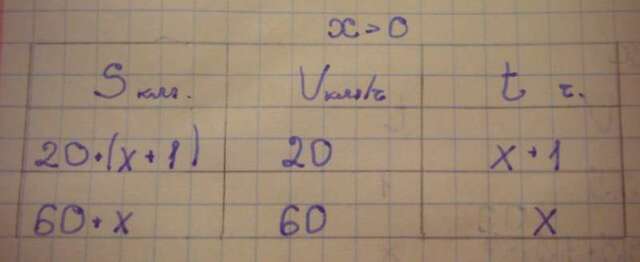 x>0
S км. V км/ч t ч.
20·(x+1) 20 x+1
60·x 60 x